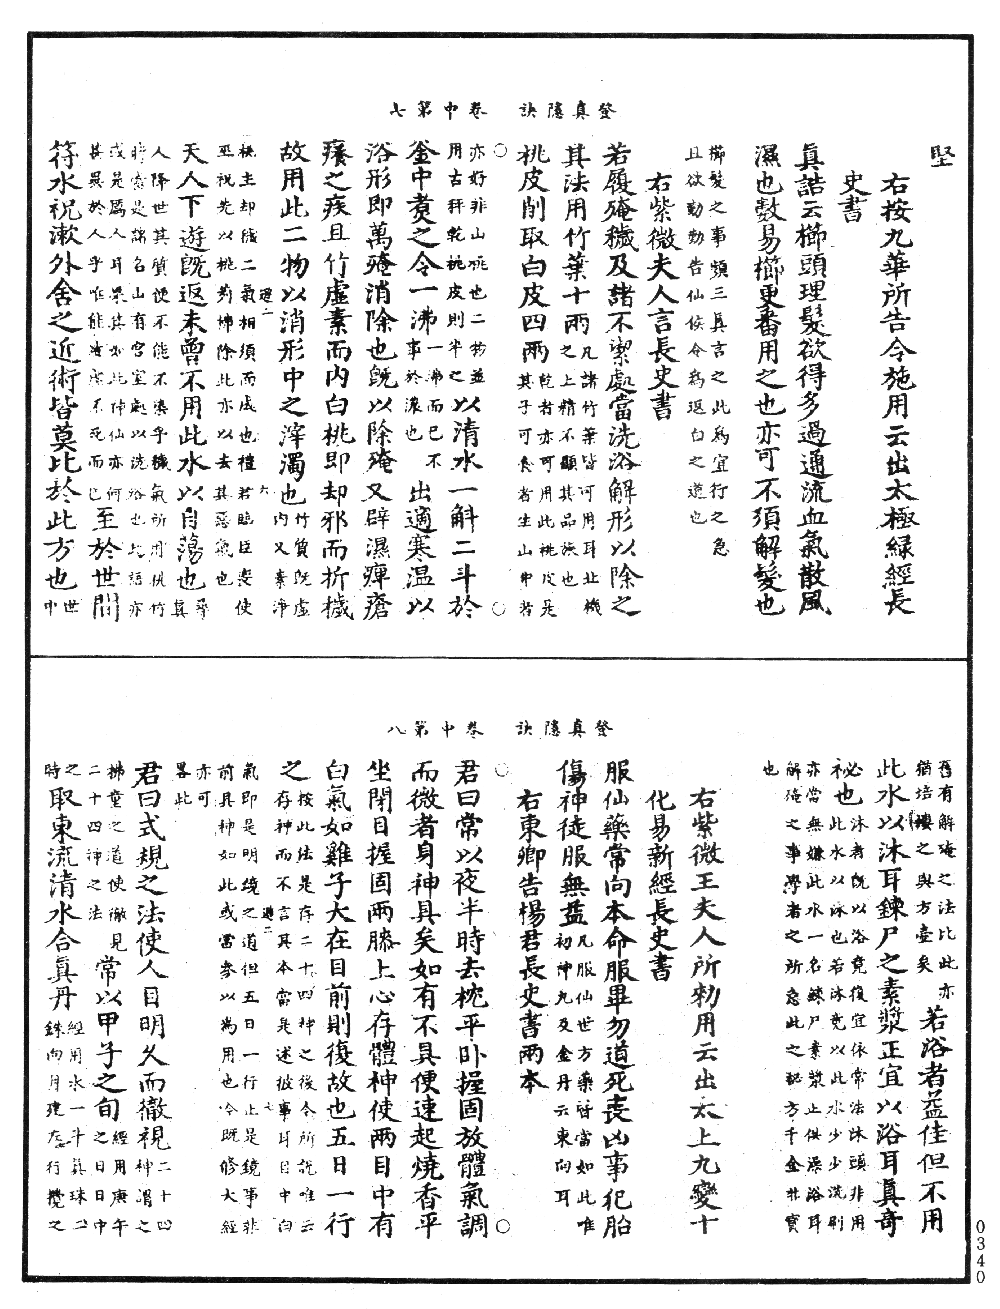 登真隱訣　卷中第七
堅
右按九華所告令施用云出太極緑經長
史書
眞誥云櫛頭理髮欲得多過通流血氣散風
濕也數易櫛更番用之也亦可不須解髮也
櫛髮之事類三眞言之此爲宜行之急
且欲勤勤告仙侯令爲返白之道也
右紫微夫人言長史書
若履殗穢及諸不潔處當洗浴解形以除之
其法用竹葉十兩凡諸竹葉皆可用耳北機
之上精不顯其品族也
桃皮削取白皮四兩乾者亦可用此桃皮是
其子可食者生山中者
亦好非山桃也二物並
用古秤乾桃皮則半之以清水一斛二斗於
釜中煑之令一沸一沸而已不
事於濃也出適寒温以
浴形即萬殗消除也旣以除殗又辟濕痺瘡
癢之疾且竹虛素而内白桃即却邪而折穢
故用此二物以消形中之滓濁也竹質旣虛
内又素淨
桃主却穢二氣相須而成也禮君臨臣喪使
巫祝先以桃茢拂除此亦以去其惡氣也
天人下遊旣返未曾不用此水以自蕩也尋
眞
人降世其質便不能不染乎穢氣所用桃竹
時當是諸名山有宮室處以洗浴也此語亦
或是厲人耳果其如此仲仙亦何
其異於人乎唯能淹虛不死而已至於世間
符水祝漱外舍之近術皆莫比於此方也世
中
登真隱訣　卷中第八
舊有解殗之法比此亦
猶培塿之與方壺矣若浴者益佳但不用
此水以沐耳鍊尸之素漿正宜以浴耳眞奇
祕也必沐者旣以浴竟復宜依常法沐頭非用
此水以沐也若沐竟以此水少少洗刷
亦當無嫌此水一名鍊尸素漿止供澡浴耳
解殗之事學者之所急此之祕方千金非寶
也
右紫微王夫人所勑用云出太上九變十
化易新經長史書
服仙藥常向本命服畢勿道死喪凶事犯胎
傷神徒服無益凡服仙世方藥皆當如此唯
初神丸及金丹云東向耳
右東卿告楊君長史書兩本
君曰常以夜半時去枕平卧握固放體氣調
而微者身神具矣如有不具便速起燒香平
坐閉目握固兩膝上心存體神使兩目中有
白氣如雞子大在目前則復故也五日一行
之按此法是存二十四神之後今所説唯云
存神而不言其本當是述彼事耳目中白
氣即是明鏡之道但五日一行止是鏡事非
前具神如此或當參以爲用也今旣修大經
亦可
畧此
君曰式規之法使人目明久而徹視神謂之二十四
拂童之道使徹見
二十四神之法常以甲子之旬經用庚午
之日日中
之時取東流清水合眞丹經用水一斗眞珠二
銖向月建左行攪之
0340